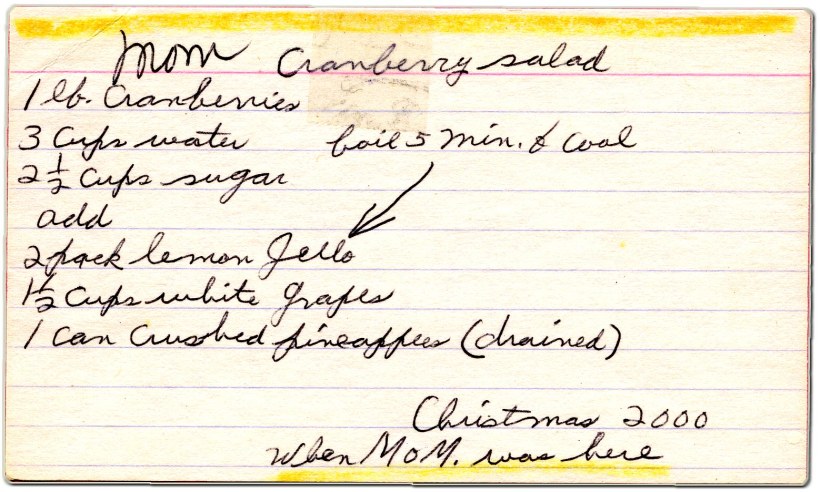 Mom Cranberry salad
1 lb. Cranberries
3 Cups water boil 5 min. & Cool
2 1/2 Cups sugar
add
2 pack lemon Jello
1 1/2 Cups white grapes
1 can Crushed pineapples (drained)
Christmas 2000
When MoM. was here